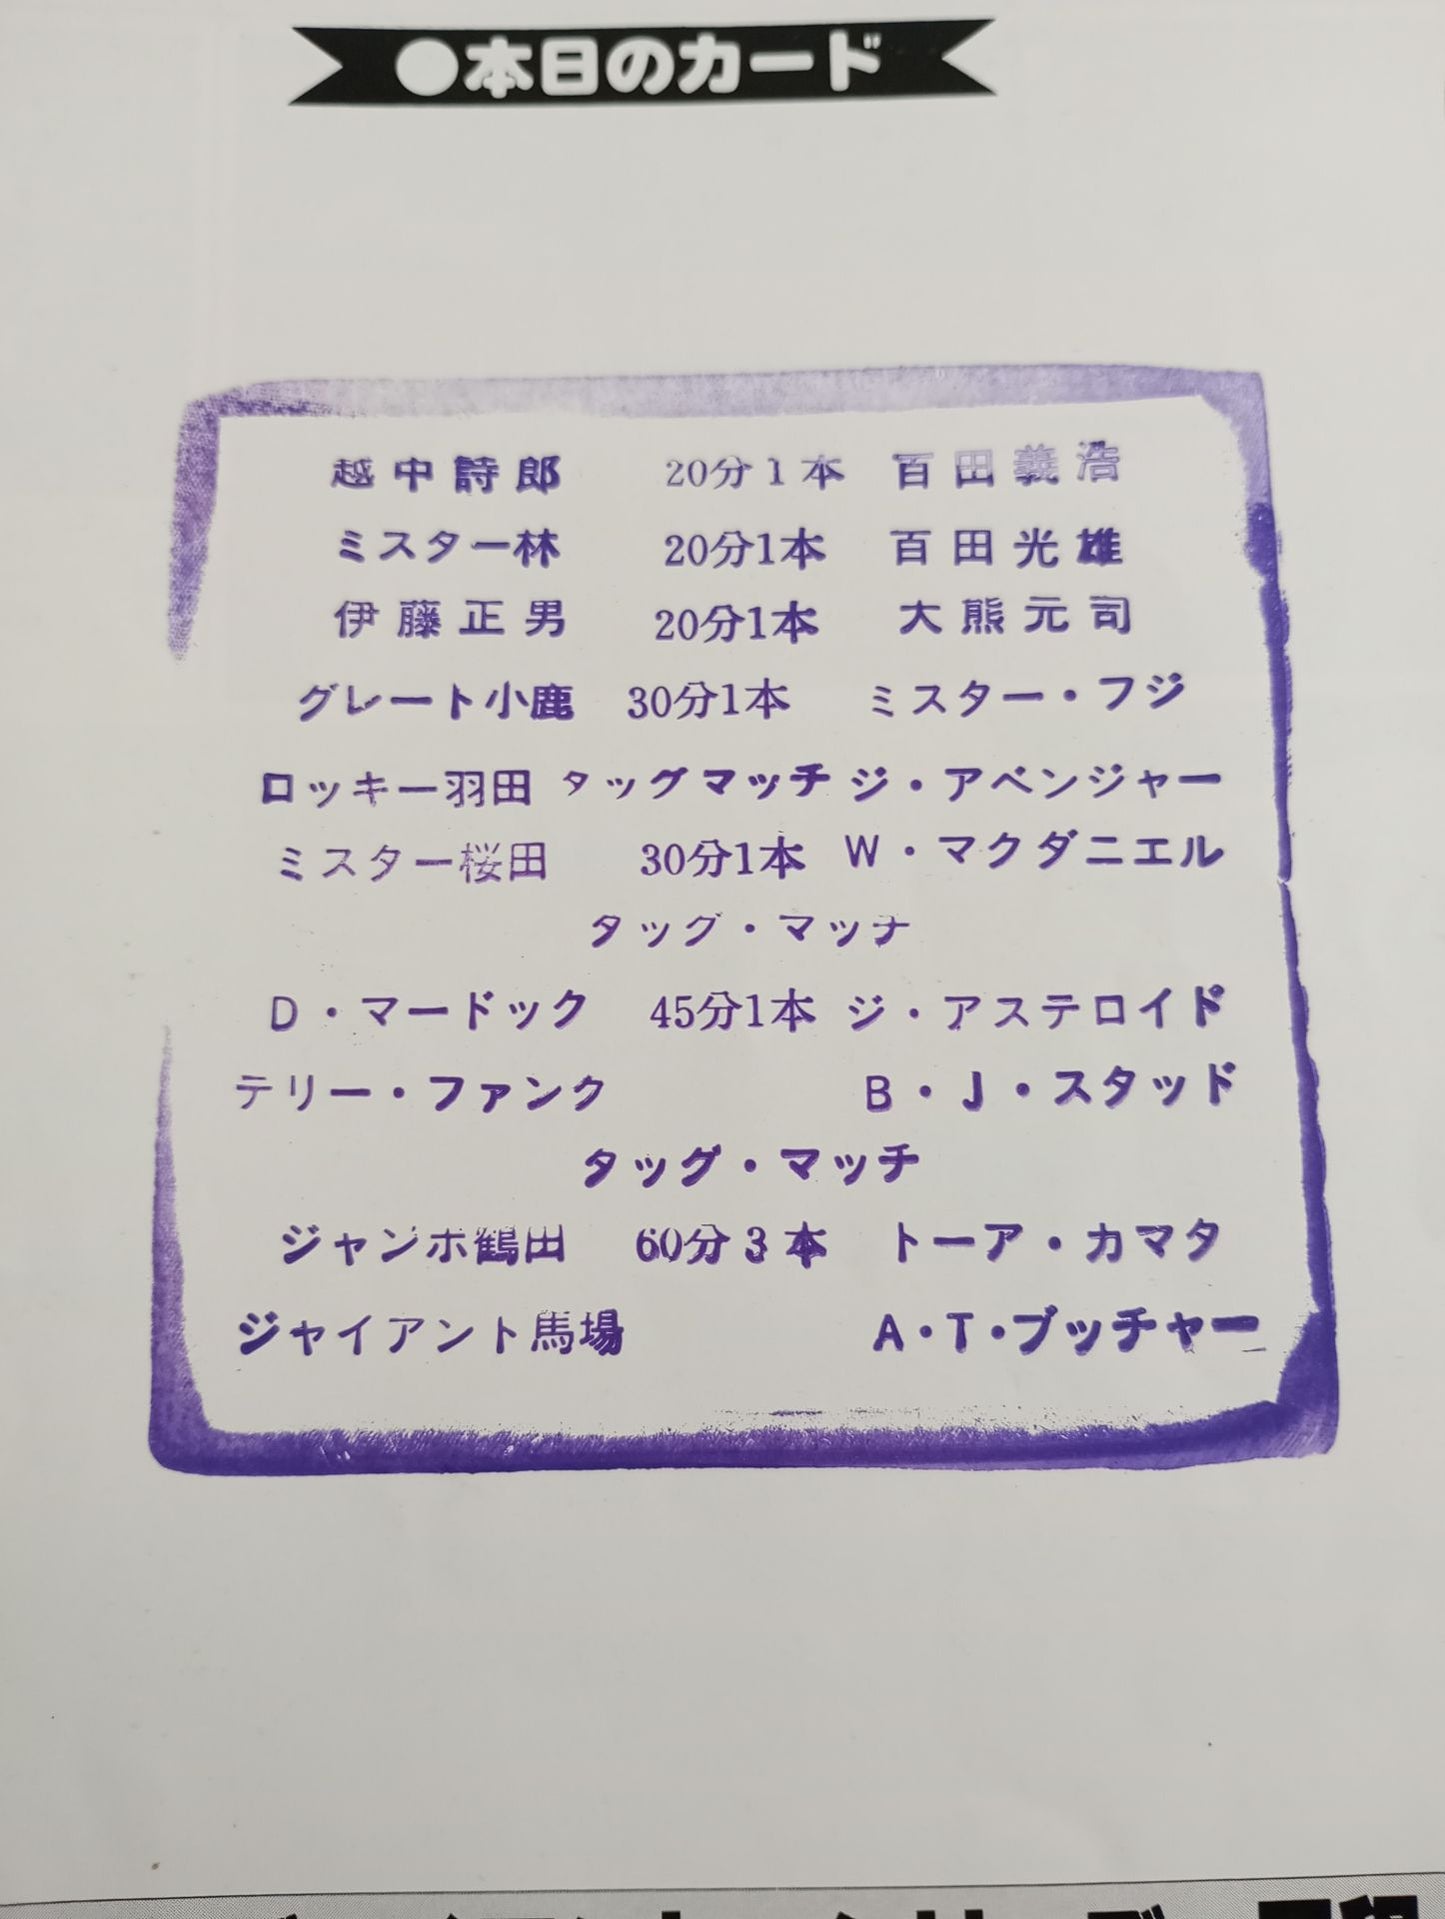 ●本日のカード
越中詩郎 20分1本 百田義浩
ミスター林 20分1本 百田光雄
伊藤正男 20分1本 大熊元司
グレート小鹿 30分1本 ミスター・フジ
ロッキー羽田 タッグマッチ ジ・アベンジャー
ミスター桜田 30分1本 W・マクダニエル
タッグ・マッチ
D・マードック 45分1本 ジ・アステロイド
テリー・ファンク B・J・スタッド
タッグ・マッチ
ジャンボ鶴田 60分3本 トーア・カマタ
ジャイアント馬場 A・T・ブッチャー